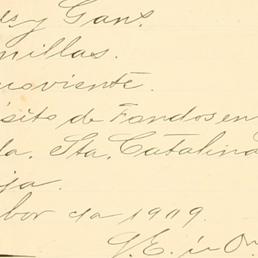 es y Gans.
millas.
oviente.
sito de Fondos en
da. Sta. Catalina
ja.
bor da 1909.
G. E. in